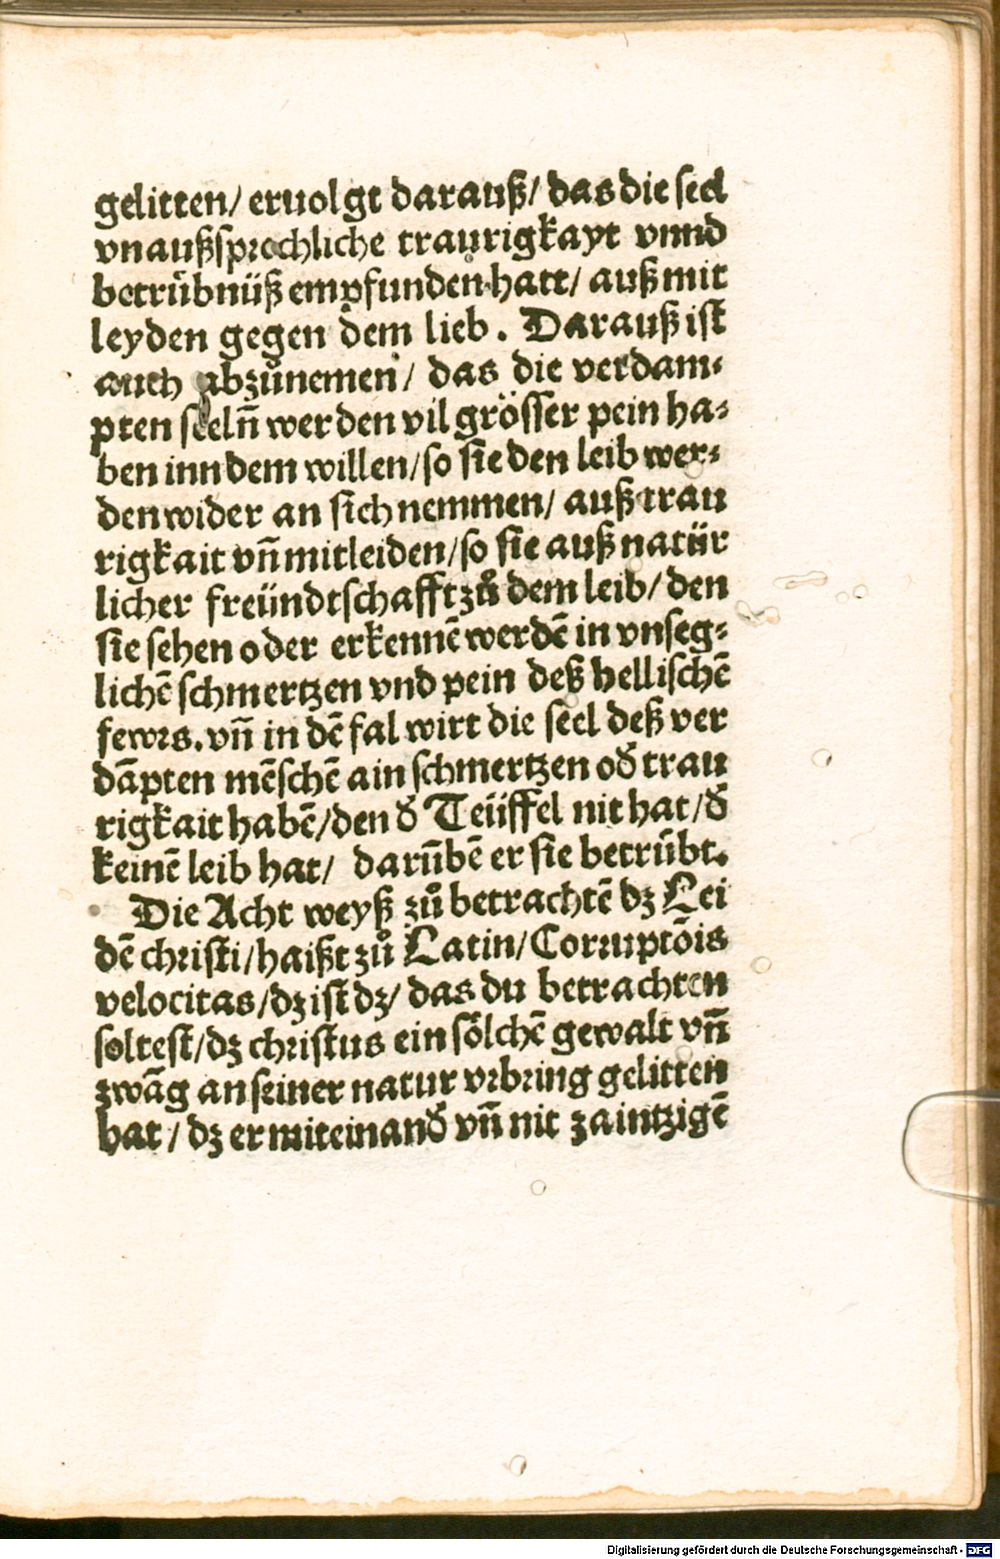 gelitten/ eruolgt darauß/ das die seel
vnaußsprechliche traurigkayt vnnd
betrübnüß empfunden hatt/ auß mit
leyden gegen dem lieb. Darauß ist
auch abzůnemen/ das die verdam⸗
pten seelñ werden vil grösser pein ha⸗
ben inn dem willen/ so sie den leib wer⸗
den wider an sich nemmen/ auß trau
rigkait vñ mitleiden/ so sie auß natür
licher freündtschafft zů dem leib/ den
sie sehen oder erkennē werdē in vnseg⸗
lichē schmertzen vnd pein deß hellischē
fewrs. vñ in dē fal wirt die seel deß ver
dāpten mēschē ain schmertzen od̕ trau
rigkait habē/ den d̕ Teüffel nit hat/ d̕
keinē leib hat/ darūbē er sie betrübt.
Die Acht weyß zů betrachtē dz Lei
dē christi/ haißt zů Latin/ Corruptōis
velocitas/ dz ist dz/ das du betrachten
soltest/ dz christus ein sölchē gewalt vñ
zwāg an seiner natur vrbring gelitten
hat/ dz er miteinand̕ vñ nit zaintzigē
Digitalisierung gefördert durch die Deutsche Forschungsgemeinschaft - DFG